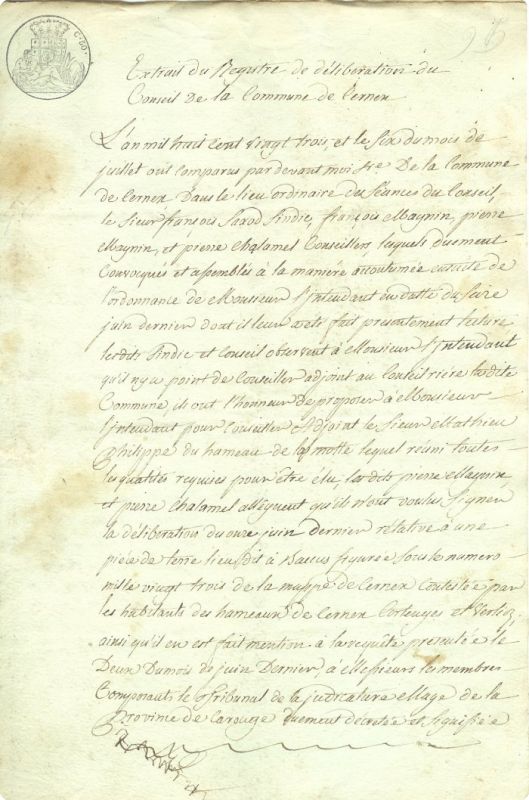 C. 60.
Extrait du Registre de délibération du
Conseil De la Commune De Cernex
L'an mil huit Cent vingt trois, et le Six du mois de
juillet ont comparus par devant moi Sre. De la Commune
De Cernex Dans le lieu ordinaire du Séances du Conseil,
le Sieur françois Sindic, françois Magnin, pierre
Magnin, et pierre Chalamel Conseillers lesquels Duement
Convoqués et assemblés à la manière accoutumée ensuite de
l'ordonnance de Monsieur l'Intendant en datte du Seize
juin dernier dont il leur a été fait presentement lecture
lesdits Sindic et Conseil observent à Monsieur l'Intendant
qu'il n'y a point de Conseiller adjoint au Conseil rière ladite
Commune, ils ont l'honneur De proposer à Monsieur
l'Intendant pour Conseiller Adjoint le Sieur Mathieu
Philippe du hameau de la motte lequel réuni toutes
les qualités requises pour être élu, les dits pierre Magnin,
et pierre Chalamel allèguent qu'ils n'ont voulus Signer
la déliberation du onze juin dernier rélative à une
pièce de terre lieu dit à figurée Sous le numero
mille vingt trois de la mappe de Cernex Contestée par
les habitants des hameaux de Cernex et Verlioz,
ainsi qu'il en est fait mention à la requête presentée le
Deux Du mois de juin Dernier, à Messieurs les membres
Composants le Tribunal de la judicature Mage de la
Province de Carouge Duement decretée et Signifiée